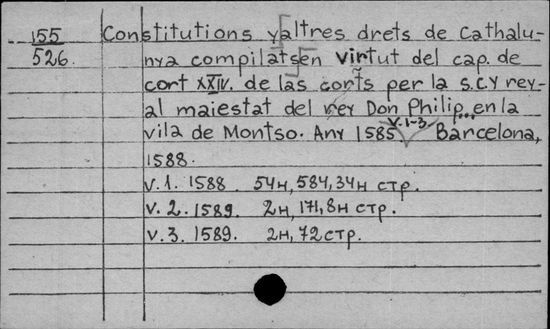 155 Constitutions y altres drets de Cathalu-
526. nya compilats en virtut del cap. de
cort XXIV. de las corts per la s.c.y rey-
al maiestat del rey Don Philip... en la
vila de Montso. Any 1585. v.1-3. Barcelona,
1588.
v. 1. 1588 54н, 584, 34н стр.
v. 2. 1589. 2н, 171, 8н стр.
v. 3. 1589. 2н, 72 стр.